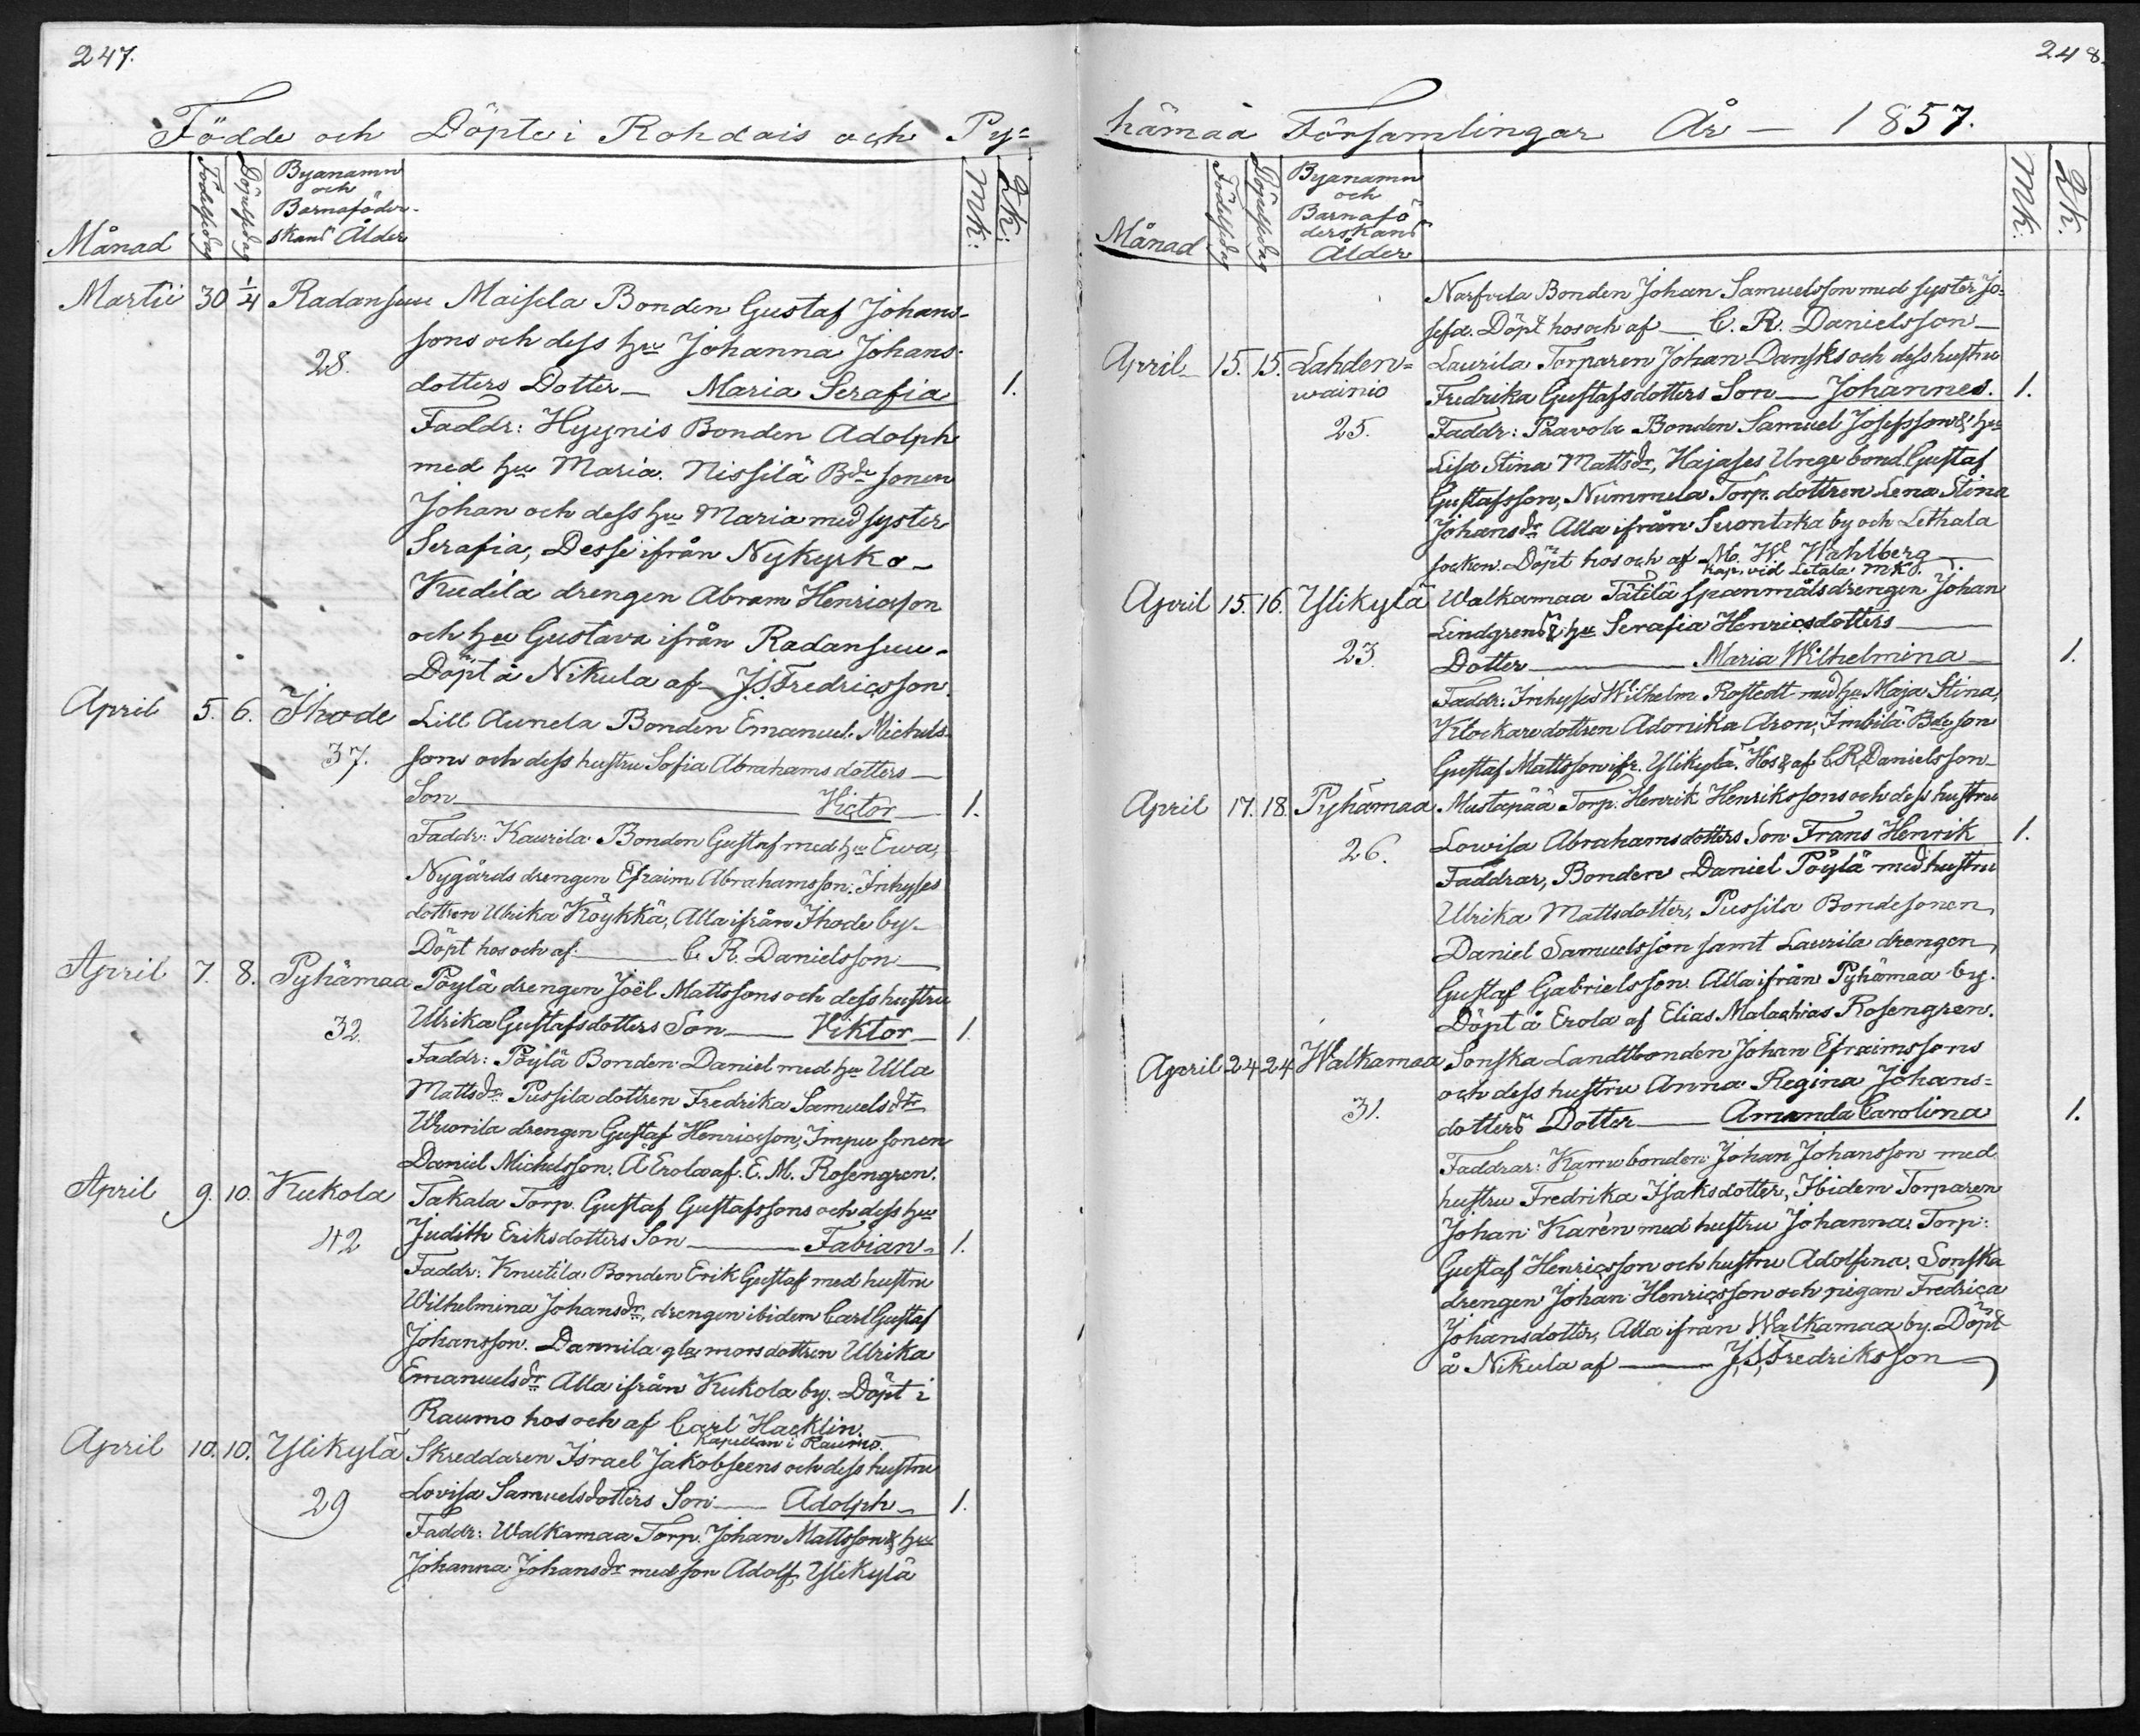 247.
Födde och Döpte i Rohdais och Py=
Månad
Födelsedag
Döpelsedag
Byanamn
och
Barnaföder-
skans Ålder
Mk:
Qk:
Martii 30 1/4 Radansuu Maisela Bonden Gustaf Johans-
sons och dess hu Johanna Johans-
28.
dotters Dotter — Maria Serafia 1.
Faddr: Hyynis Bonden Adolph
med hu Maria. Nissilä Bde sonen
Johan och dess hu Maria med syster
Serafia, Desse ifrån Nykyrko —
Kudila drengen Abram Henricsson
och hu Gustava ifrån Radansuu.
Döpt å Nikula af J.S. Fredricsson
April 5. 6. Ihode Lill Aunela Bonden Emanuel Michels-
37. sons och dess hustru Sofia Abrahamsdotters —
Son — Victor — 1.
Faddr: Kaurila Bonden Gustaf med hu Ewa,
Nygårds drengen Efraim Abrahamsson. Inhyses
dottren Ulrika Köykkä, Alla ifrån Ihode by —
Döpt hos och af: — C. R. Danielsson —
April 7. 8. Pyhämaa Pöylä drengen Joël Mattssons och dess hustru
32. Ulrika Gustafsdotters Son — Viktor — 1.
Faddr: Pöylä Bonden Daniel med hu Ulla
Mattsdr Pussila dottren Fredrika Samuelsdtr
Wuorila drengen Gustaf Henricsson, Impu sonen
Daniel Michelsson. Å Erola af E. M. Rosengren.
April 9. 10. Kukola Takala Torp. Gustaf Gustafssons och dess hu
42 Judith Eriksdotters Son — Fabian — 1.
Faddr: Knutila Bonden Erik Gustaf med hustru
Wilhelmina Johansdr, drengen ibidem Carl Gustaf
Johansson. Dannila gla mors dottren Ulrika
Emanuelsdr Alla ifrån Kukola by. Döpt i
Raumo hos och af Carl Hacklin.
Kapellan i Raumo.
April 10. 10. Ylikylä Skreddaren Israel Jakobseens och dess hustru
29 Lovisa Samuelsdotters Son — Adolph — 1.
Faddr: Walkamaa Torp. Johan Mattsson & hu
Johanna Johansdr med son Adolf, Ylikylä
248.
hämaa Församlingar År — 1857.
Månad
Födelsedag
Döpelsedag
Byanamn
och
Barnafö
derskans
Ålder
Mk:
Qk:
Narfvela Bonden Johan Samuelsson med syster Jo-
sefa. Döpt hos och af — C. R. Danielsson —
April 15. 15. Lahden= Laurila Torparen Johan Dansks och dess hustru
wainio Fredrika Gustafsdotters Son — Johannes. 1.
25. Faddr: Paavola Bonden Samuel Josefsson & hu
Lisa Stina Mattsdr, Hajases Unge bond. Gustaf
Gustafsson, Nummela Torp. dottren Lena Stina
Johansdr Alla ifrån Suontaka by och Lethala
socken. Döpt hos och af Mo. Wl Wahlberg —
Kap. vid Letala MKO.
April 15. 16. Ylikylä Walkamaa Tätilä spanmålsdrengen Johan
Lindgrens & hu Serafia Henricsdotters —
23. Dotter — Maria Wilhelmina — 1.
Faddr: Inhyses Wilhelm Rostedt med hu Maja Stina,
Klockare dottren Adonika Aron, Imbilä Bde son
Gustaf Mattsson ifr. Ylikylä. Hos & af C. R. Danielsson —
April 17. 18. Pyhämaa Mustapää Torp. Henrik Henrikssons och dess hustru
26. Lowisa Abrahamsdotters Son Frans Henrik 1.
Faddrar, Bonden Daniel Pöylä med hustru
Ulrika Mattsdotter, Pussila Bondesonen
Daniel Samuelsson samt Laurila drengen
Gustaf Gabrielsson. Alla ifrån Pyhämaa by.
Döpt å Erola af Elias Malachias Rosengren.
April 24 24 Walkamaa Sonska Landtbonden Johan Efraimssons
och dess hustru Anna Regina Johans=
31. dotters Dotter — Amanda Carolina 1.
Faddrar: Kamu bonden Johan Johansson med
hustru Fredrika Isaksdotter, Ibidem Torparen
Johan Karén med hustru Johanna. Torp:
Gustaf Henricsson och hustru Adolfina. Sonska
drengen Johan Henricsson och pigan Fredrica
Johansdotter, Alla ifrån Walkamaa by. Döpt
å Nikula af — J. S. Fredriksson